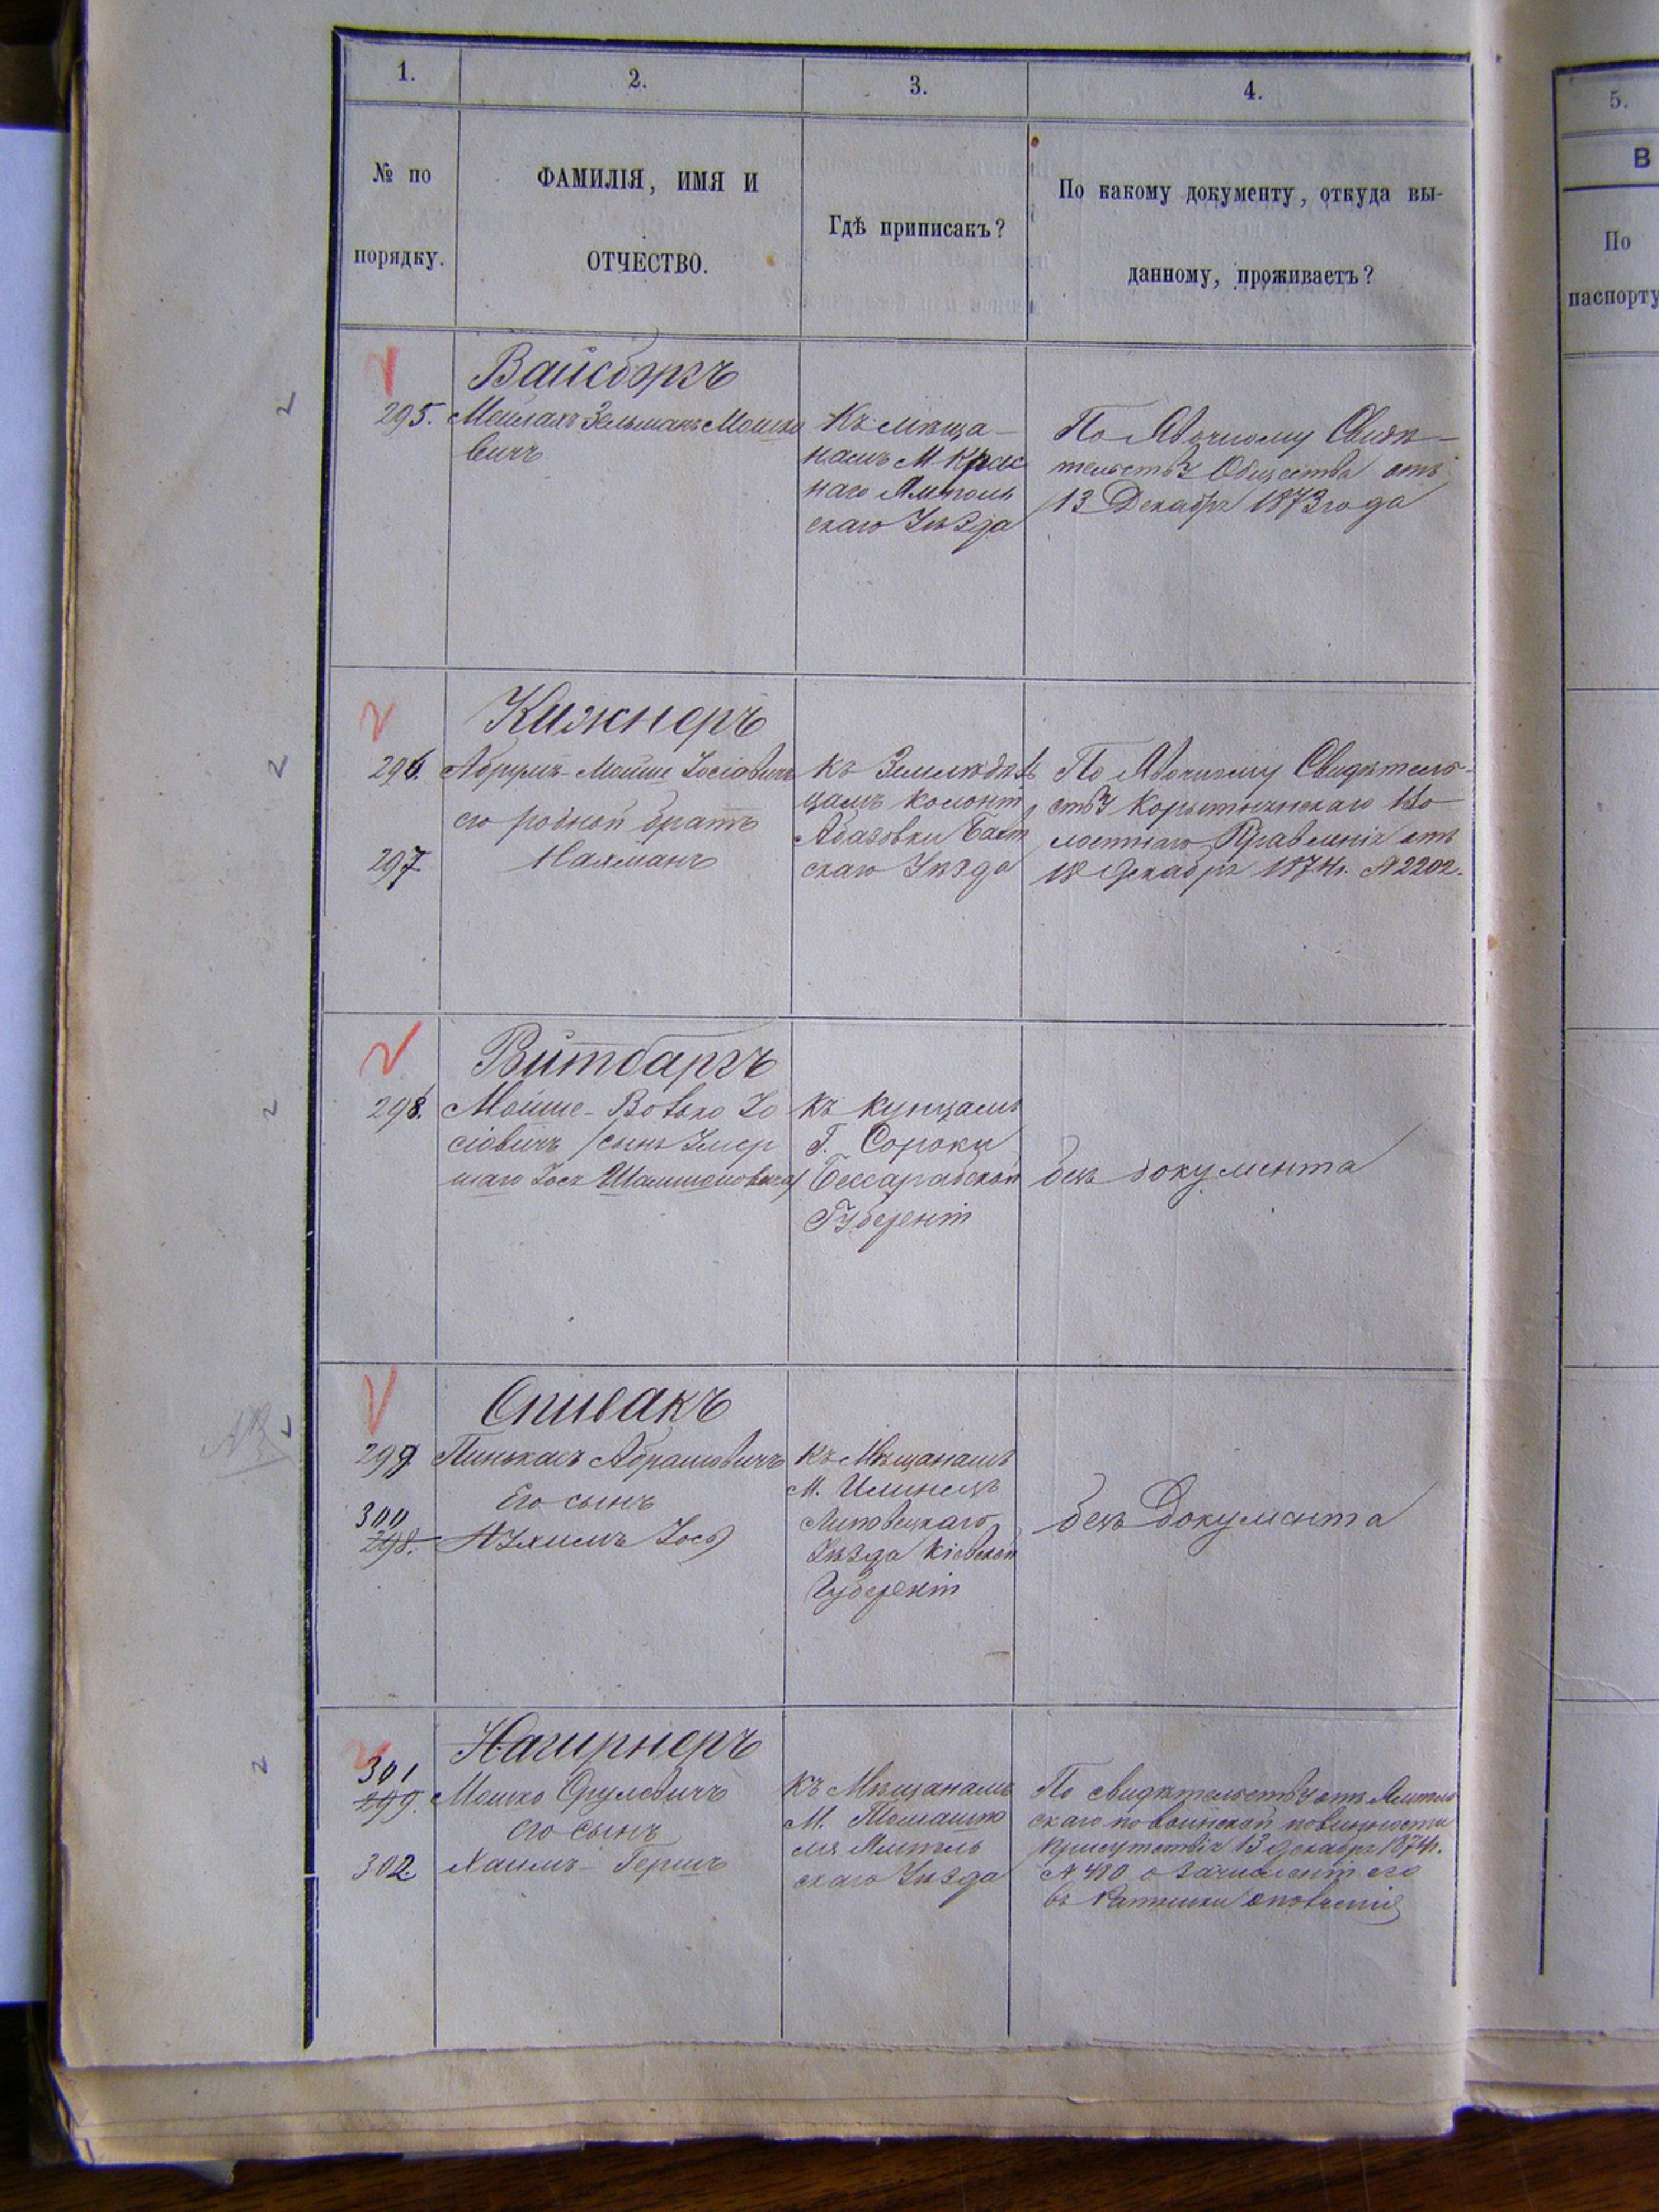 1.
2.
3.
4.
5.
№ по
порядку.
ФАМИЛІЯ, ИМЯ И
ОТЧЕСТВО.
Гдѣ приписакъ?
По какому документу, откуда вы-
данному, проживаетъ?
В
По
паспорту
Вайсбергъ
295. Мейлахъ Зельманъ Мошко
вичъ
Къ мѣща-
намъ М Крас
наго Ямполь
скаго Уѣзда
По Явочному Свидѣ-
тельству Общества отъ
13 Декабря 1873 года
Кижнеръ
296. Абрумъ Мойше Іосіовичъ
его родной братъ
297 Нахманъ
къ Земледѣль
цамъ колоніи
Абазовки Балт
скаго Уѣзда
По Явочному Свидѣтель-
ству Корытнянскаго Во
лостнаго Правленія отъ
18 Декабря 1874г. № 2202.
Витбаргъ
298. Мойше-Вовко Іо
сіовичъ (сынъ Умер
шаго Іося Шмимоновича)
къ купцамъ
Г. Сороки
Бессарабской
Губерніи
безъ документа
Спивакъ
299 Пинькасъ Абрамовичъ
Его сынъ
300
298. Нухимъ Іось
къ Мѣщанамъ
М. Илинецъ
Липовецкаго
Уѣзда Кіевской
Губерніи
безъ Документа
Нагирнеръ
301
299. Мошко Срулевичъ
его сынъ
302. Хаимъ-Гершъ
къ Мѣщанамъ
М. Томашпо
ля Ямполь
скаго Уѣзда
По свидѣтельству отъ Ямполь
скаго по воинской повинности
присутствія 13 декабря 1874г.
№ 410 о зачисленіи его
въ ратники ополченія